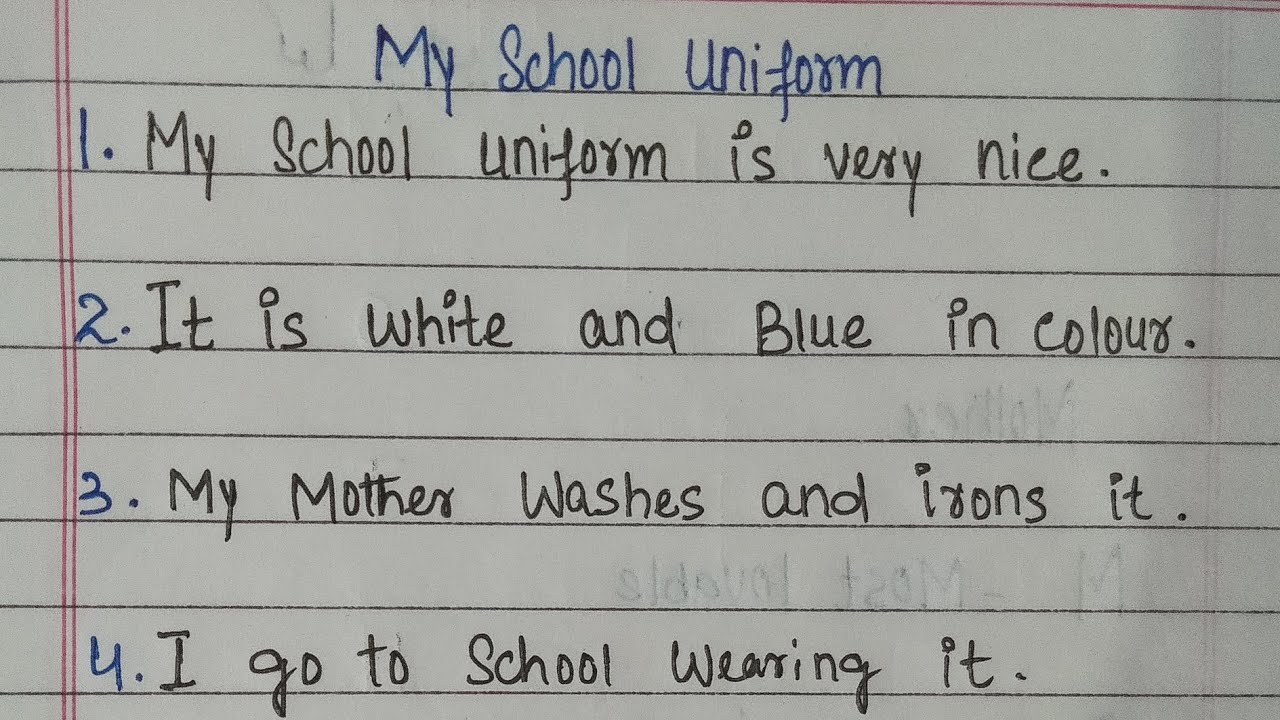 My School Uniform
1. My School uniform is very nice.
2. It is white and Blue in colour.
3. My Mother Washes and irons it.
4. I go to School Wearing it.
Mother
M - Most lovable